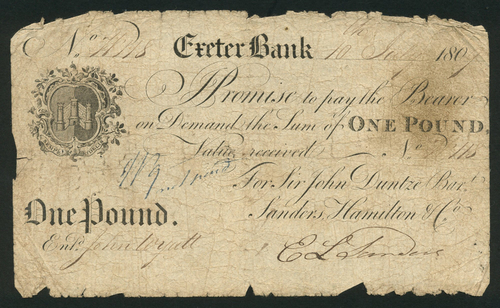 No.
Exeter Bank
10 180
I Promise to pay the Bearer
on Demand the Sum of ONE POUND.
Value received No.
For Sir John Duntze Bart.
One Pound. Sanders, Hamilton & Co.
Entd. John Wyatt E L Sanders